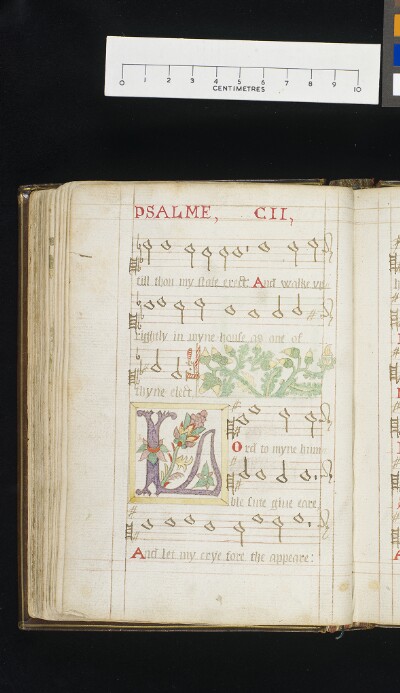 0 1 2 3 4 5 6 7 8 9 10
CENTIMETRES
PSALME, CII,
till thou my state erect. And walke vp
rightly in myne house as one of
thyne elect.
LOrd to myne hum
ble sute giue eare,
And let my crye fore the appeare: